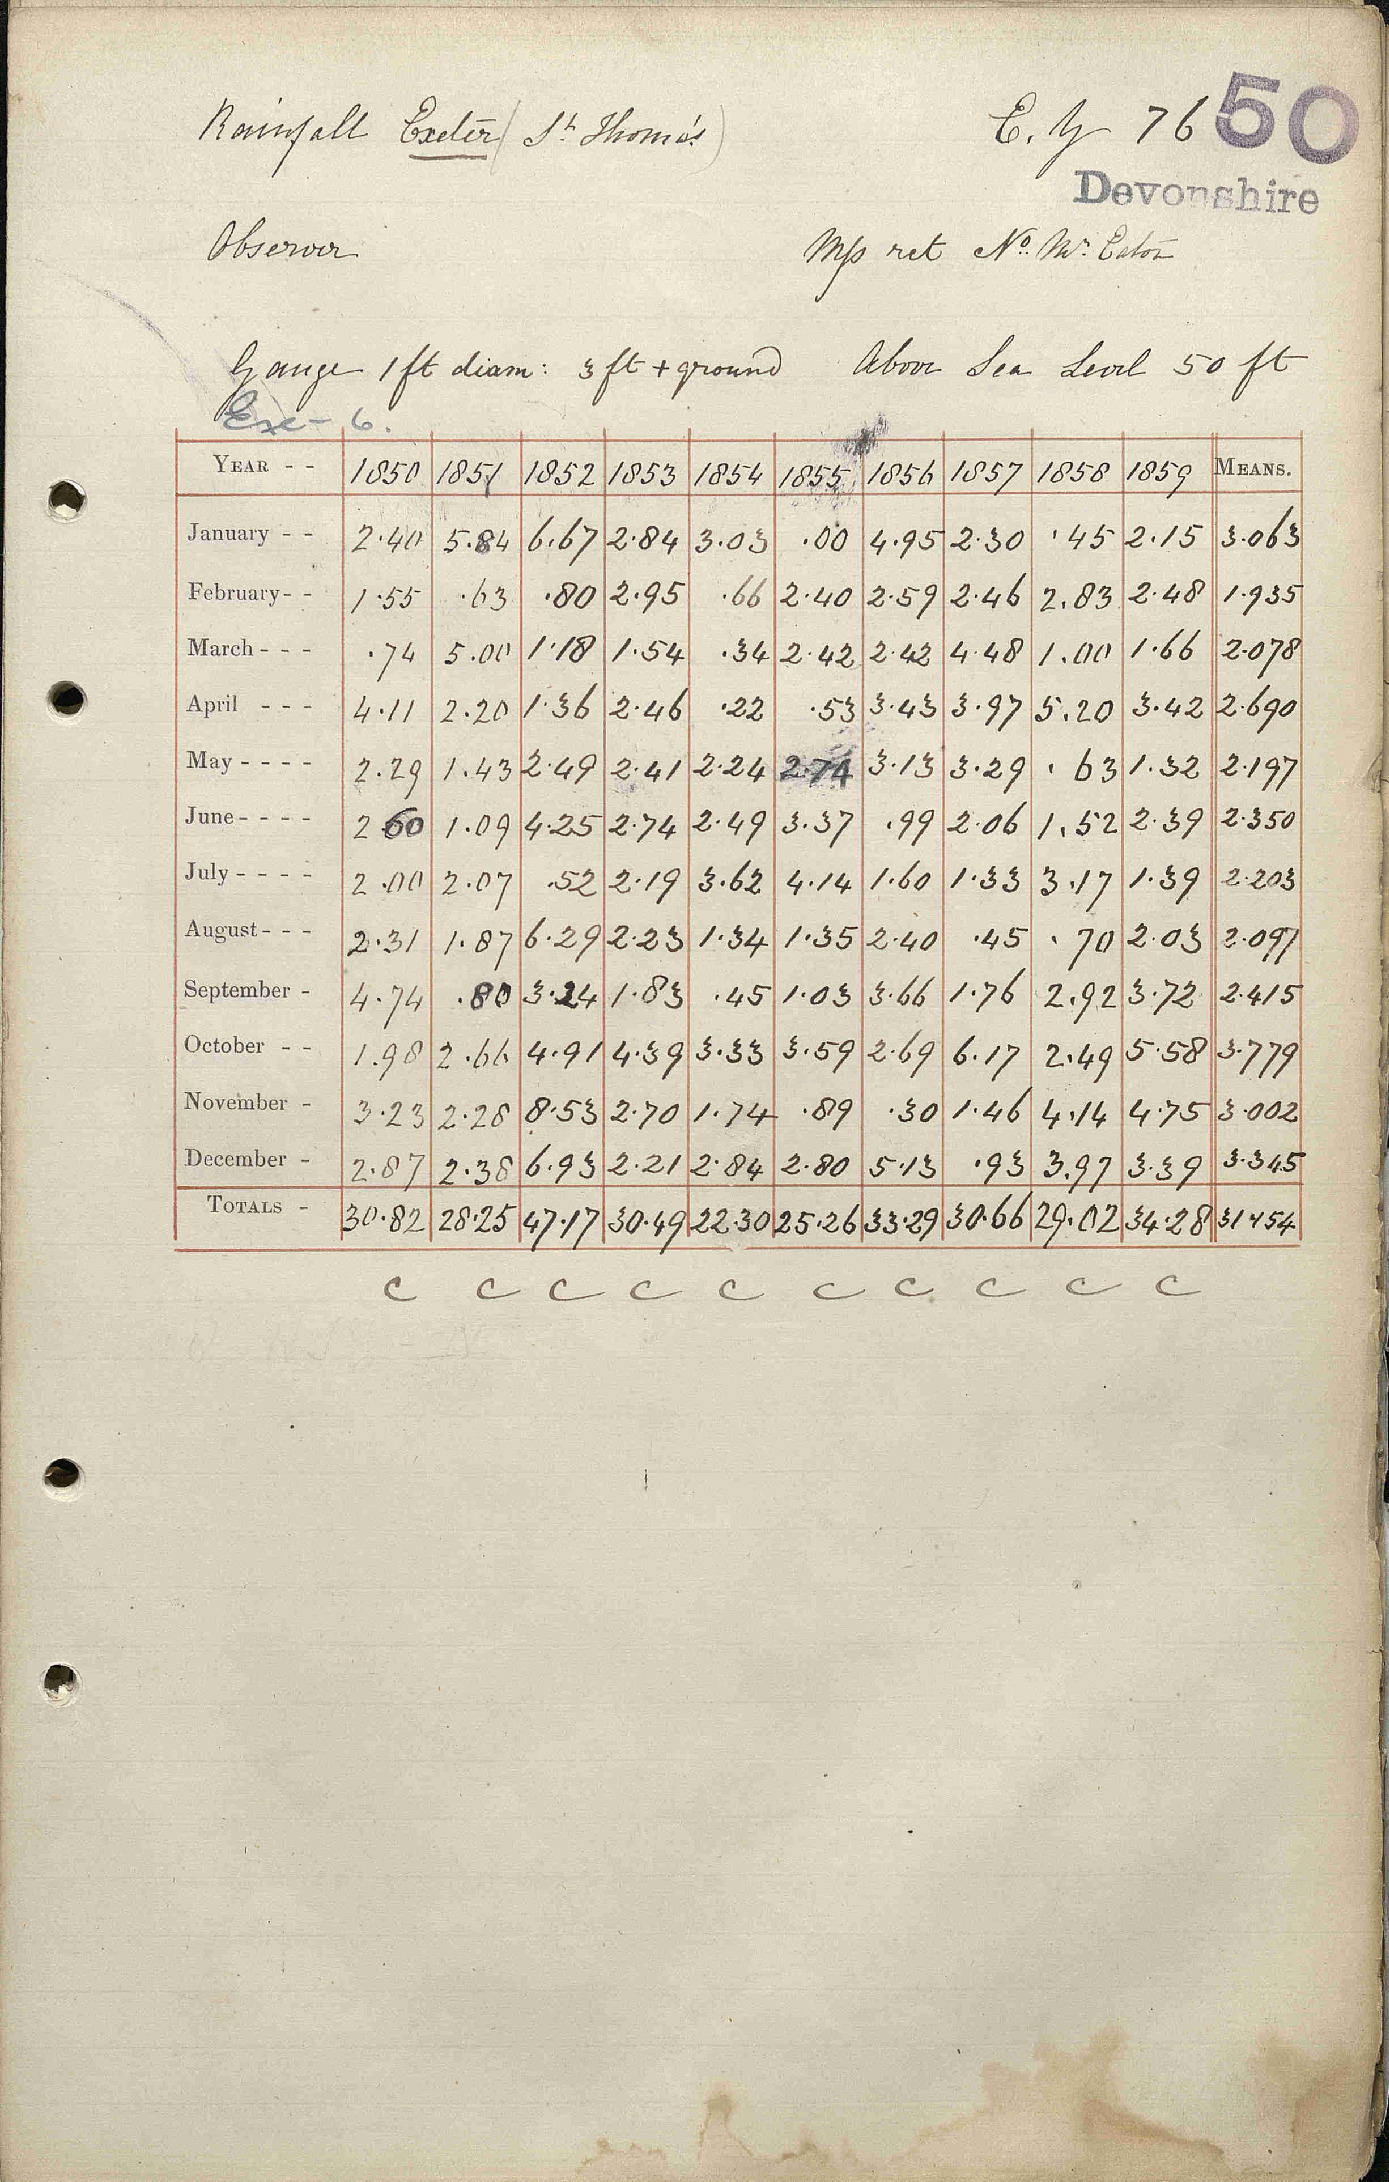 Rainfall Exeter (St Thomas) E. Y 76 50
Devonshire
Observer Mss ret No. Mr. Eaton
Gauge 1 ft diam: 3 ft + ground Above Sea Level 50 ft
Exe - 6.
YEAR - - 1850 1851 1852 1853 1854 1855 1856 1857 1858 1859 MEANS.
January - - 2.40 5.84 6.67 2.84 3.03 .00 4.95 2.30 .45 2.15 3.063
February - - 1.55 .63 .80 2.95 .66 2.40 2.59 2.46 2.83 2.48 1.935
March - - - .74 5.00 1.18 1.54 .34 2.42 2.42 4.48 1.00 1.66 2.078
April - - - 4.11 2.20 1.36 2.46 .22 .53 3.43 3.97 5.20 3.42 2.690
May - - - - 2.29 1.43 2.49 2.41 2.24 2.74 3.13 3.29 .63 1.32 2.197
June - - - - 2 60 1.09 4.25 2.74 2.49 3.37 .99 2.06 1.52 2.39 2.350
July - - - - 2.00 2.07 .52 2.19 3.62 4.14 1.60 1.33 3.17 1.39 2.203
August - - - 2.31 1.87 6.29 2.23 1.34 1.35 2.40 .45 .70 2.03 2.097
September - 4.74 .80 3.24 1.83 .45 1.03 3.66 1.76 2.92 3.72 2.415
October - - 1.98 2.66 4.91 4.39 3.33 3.59 2.69 6.17 2.49 5.58 3.779
November - 3.23 2.28 8.53 2.70 1.74 .89 .30 1.46 4.14 4.75 3.002
December - 2.87 2.38 6.93 2.21 2.84 2.80 5.13 .93 3.97 3.39 3.345
TOTALS - 30.82 28.25 47.17 30.49 22.30 25.26 33.29 30.66 29.02 34.28 31.154
C C C C C C C C C C